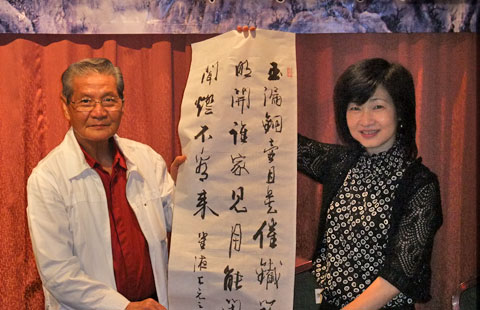 玉漏銅壺且莫催鐵
明開誰家見月能
聞燈不看来 崔液上元